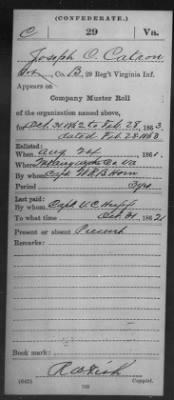 (CONFEDERATE.)
C 29 Va.
Joseph O. Catron
Co. B, 29 Reg't Virginia Inf.
Appears on
Company Muster Roll
of the organization named above,
for Oct. 31 1862 to Feb. 28, 1863.
dated Feb. 28 1863
Enlisted:
When Aug 24, 186
Where Va
By whom Capt W.R.B. Horn
Period 3 yrs
Last paid:
By whom Capt V.C.
To what time Oct. 31, 1862
Present or absent Present
Remarks:
Book mark:
(642) Copyist.